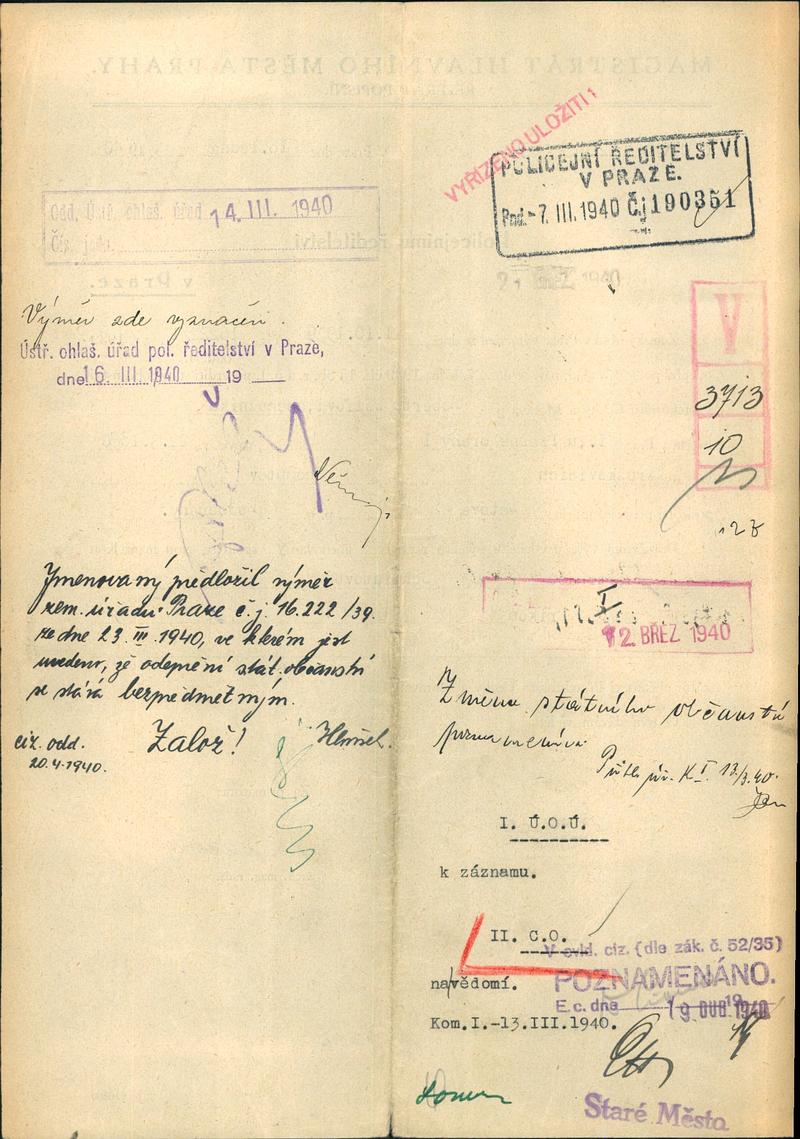 Odd. Ústř. ohlaš. úřad 14. III. 1940
Čís. jedn.
Výměr zde vyznačen.
Ústř. ohlaš. úřad pol. ředitelství v Praze,
dne 16. III. 1940 19
Jmenovaný předložil výměr
zem. úřadu Praze č. j. 16.222/39.
ze dne 23. III. 1940, ve kterém jest
uvedeno, že odepření stát. občanství
se stává bezpředmětným.
ciz. odd. Založ!
20.4.1940.
VYŘÍZENO ULOŽITI!
POLICEJNÍ ŘEDITELSTVÍ
V PRAZE.
Pod. -7. III. 1940 Čj 190351
V
3713
10
I
12. BŘEZ 1940
Změna státního občanství
poznamenána.
K I. 13/3.40.
I. Ú.O.Ú.
k záznamu.
II. C.O.
V evid. ciz. (dle zák. č. 52/35)
na vědomí. POZNAMENÁNO.
E. c. dne 19 DUB 1940
Kom.I.-13.III.1940.
Staré Město